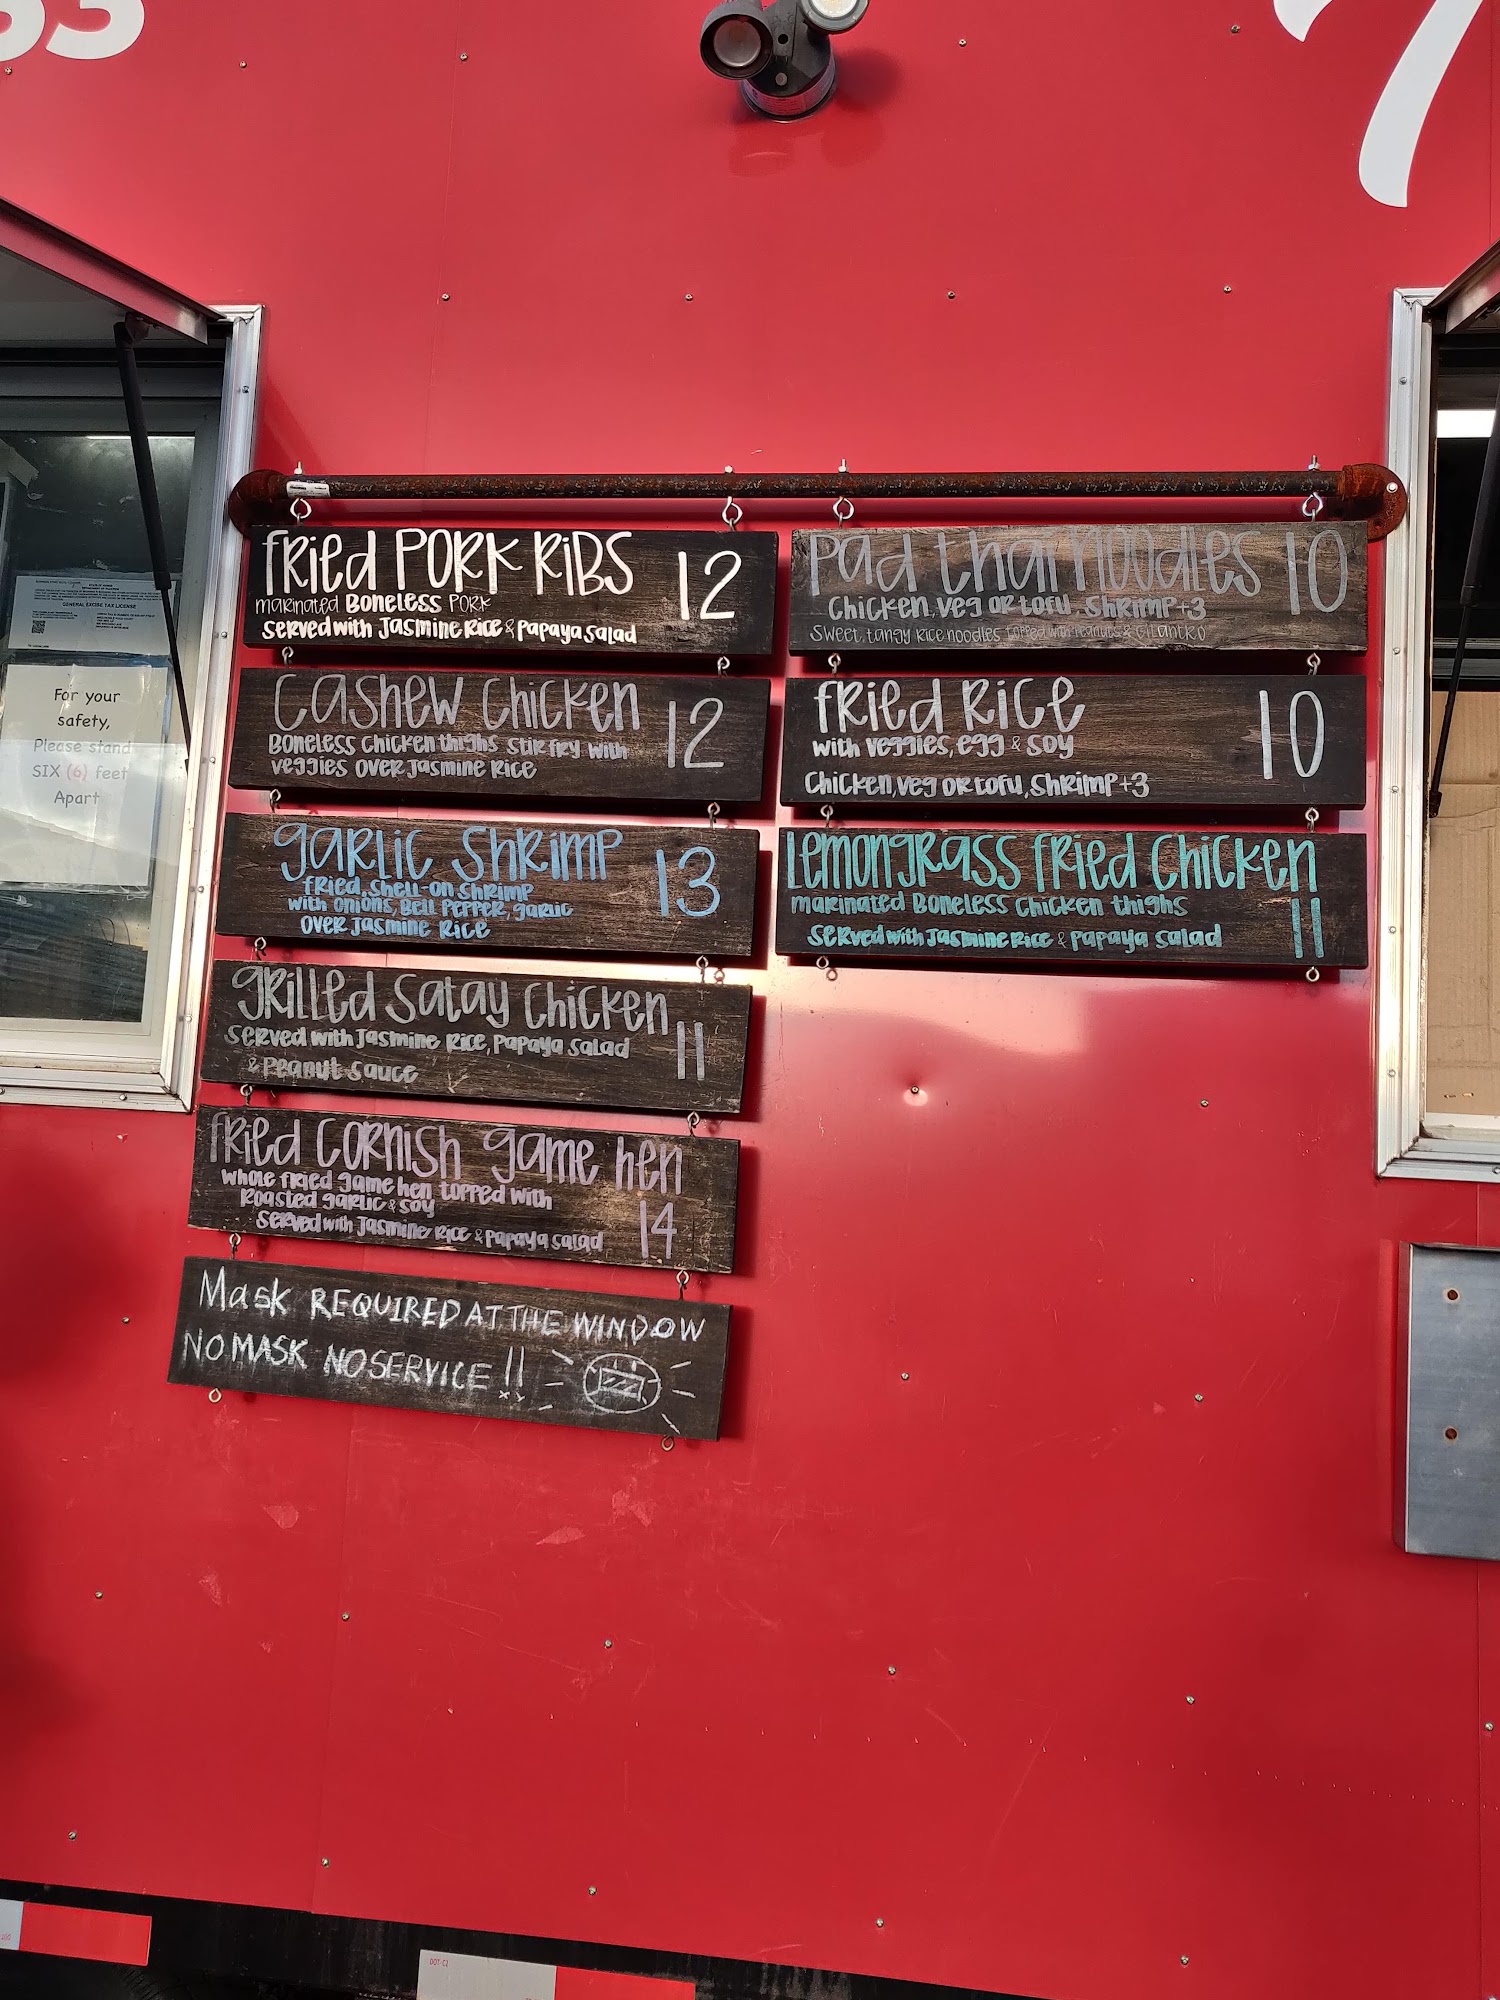 fried PORK RiBS 12
marinated Boneless PORK
served with Jasmine Rice & papaya salad
Cashew Chicken 12
Boneless Chicken thighs stir fry with
veggies over Jasmine Rice
garlic Shrimp 13
fried, shell-on shrimp
with onions, Bell Pepper, garlic
over Jasmine Rice
grilled Satay Chicken
served with Jasmine Rice, papaya salad 11
& Peanut sauce
fried Cornish game hen
whole fried game hen topped with
Roasted garlic & soy 14
served with Jasmine Rice & papaya salad
Mask REQUIRED AT THE WINDOW
NO MASK NO SERVICE !!
Pad thai noodles 10
Chicken, veg or tofu, shrimp +3
sweet, tangy rice noodles topped with peanuts & cilantro
fried Rice 10
with veggies, egg & soy
Chicken, veg or tofu, shrimp +3
Lemongrass fried Chicken
marinated Boneless Chicken thighs 11
served with Jasmine Rice & papaya salad
GENERAL EXCISE TAX LICENSE
For your
safety,
Please stand
SIX (6) feet
Apart
DOT-C2